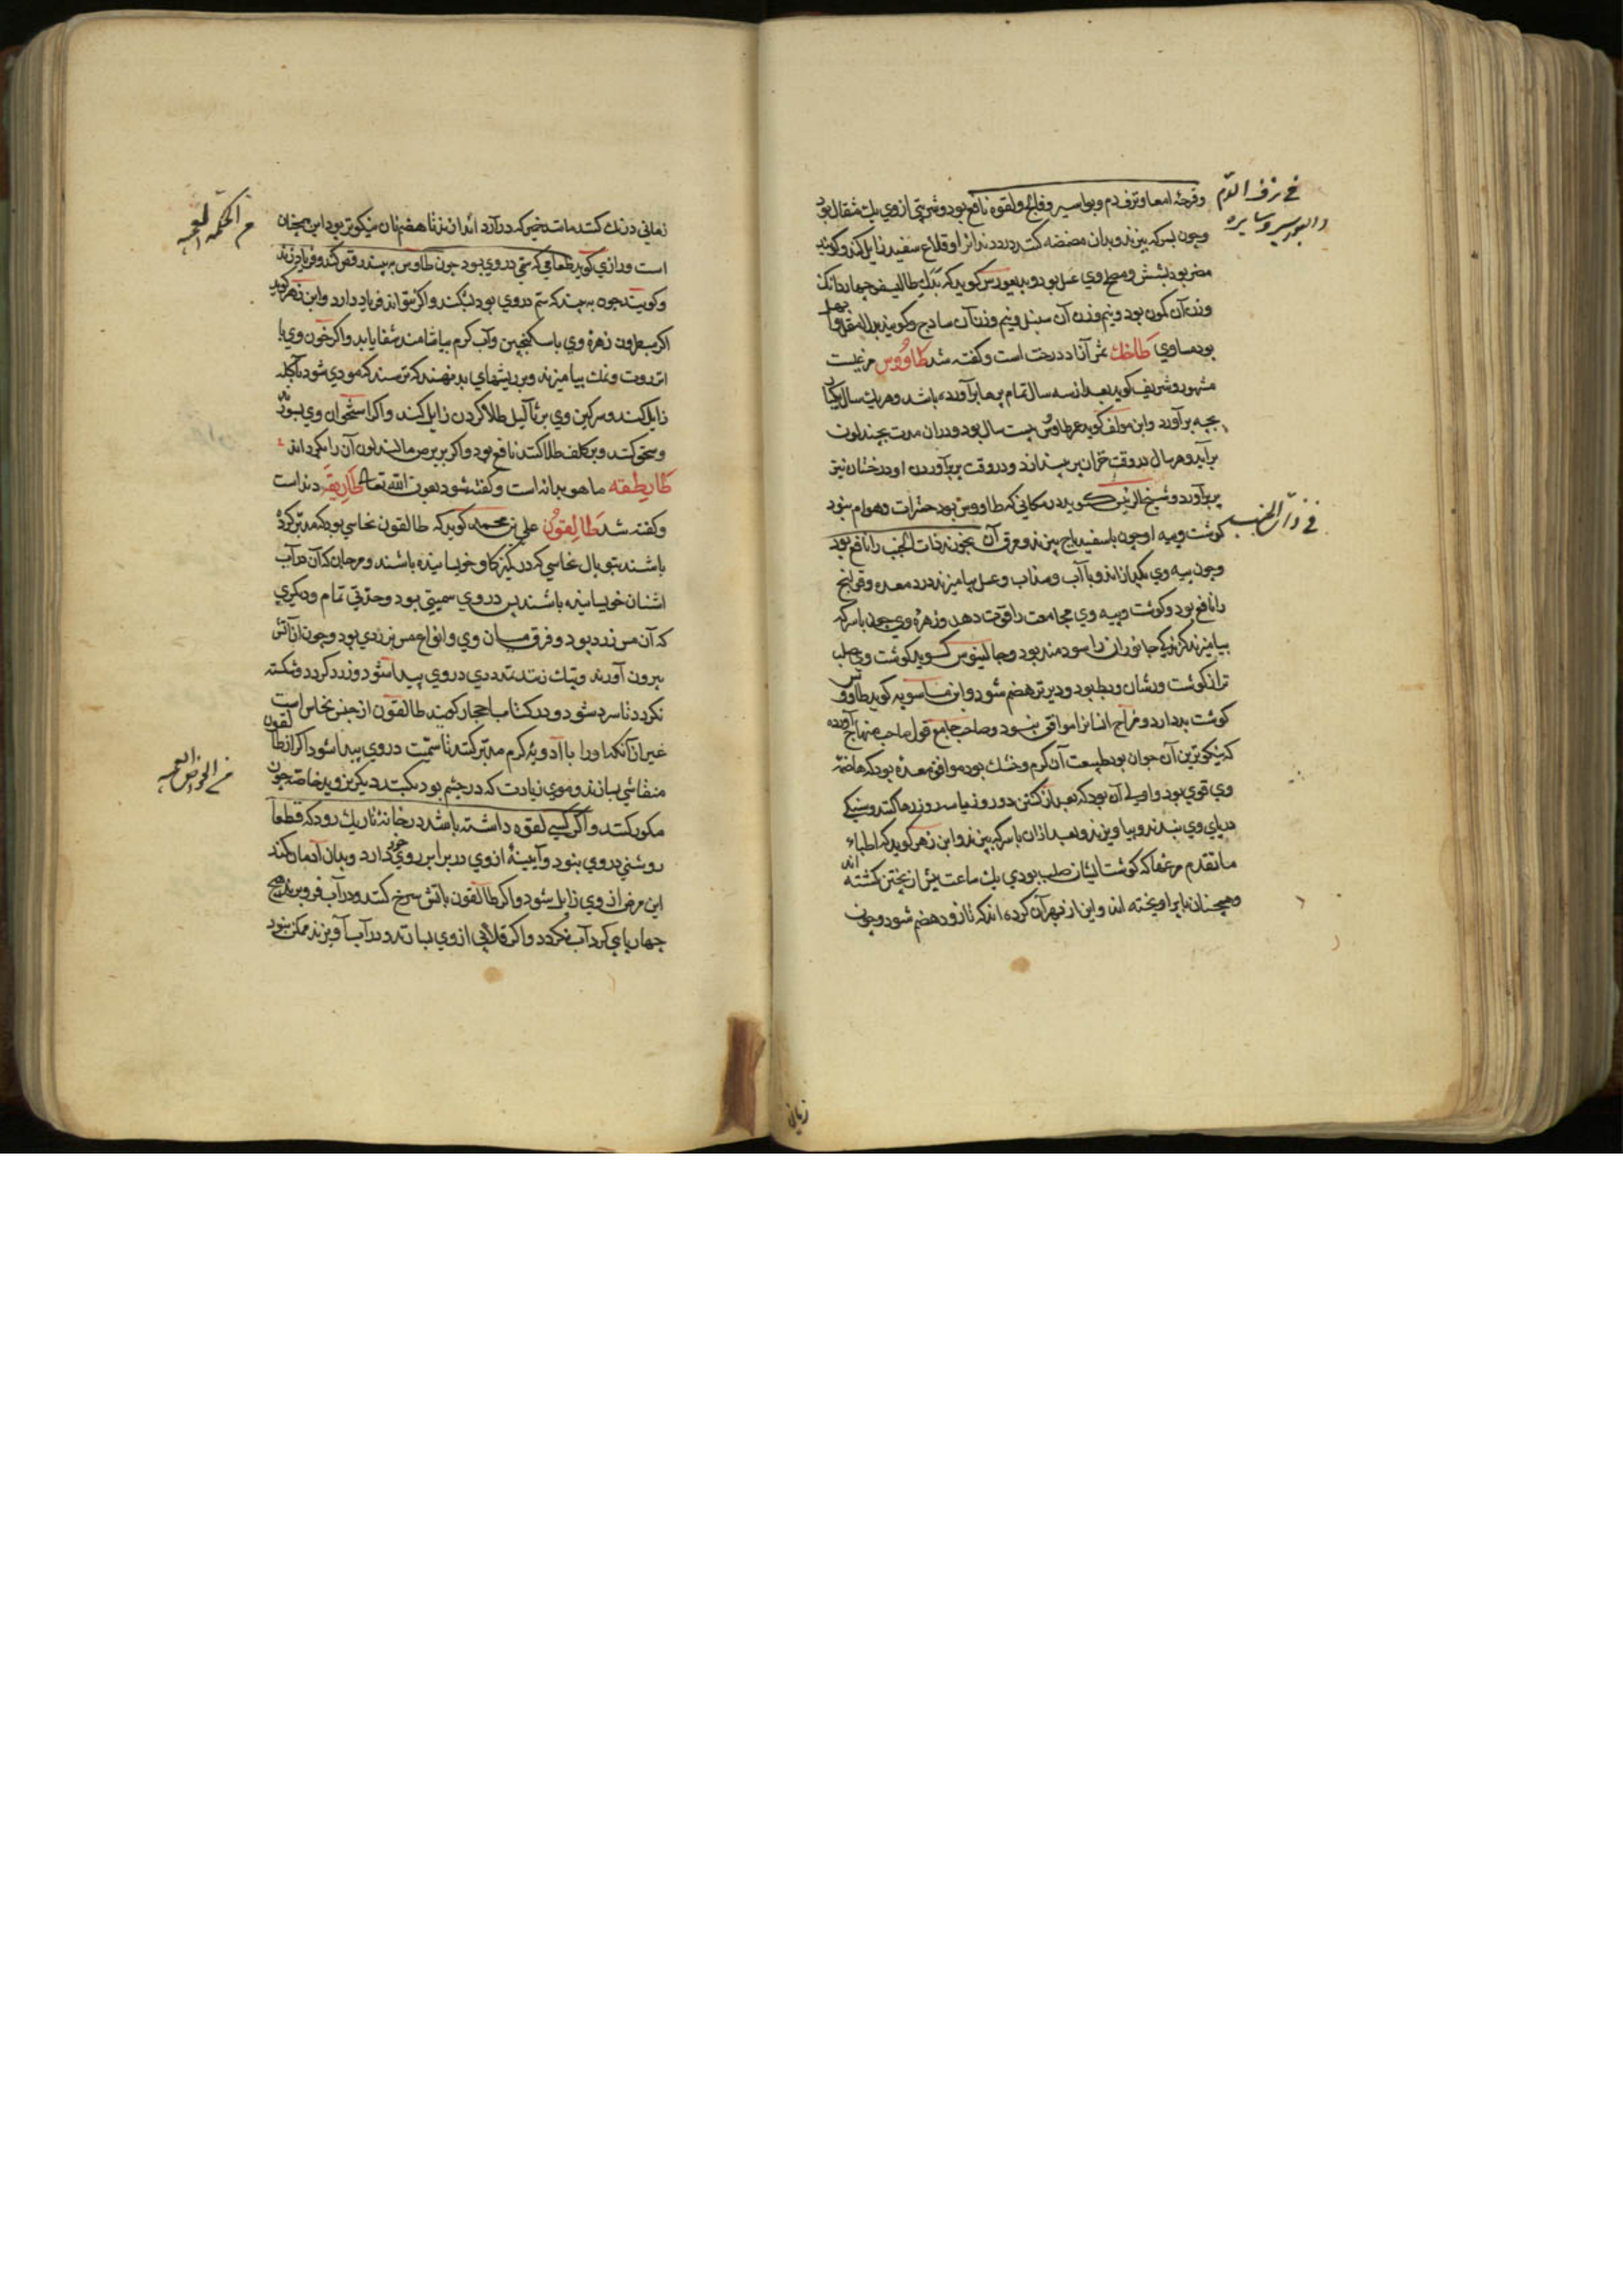 في نزف الدم
والبواسير وسايره
وقرحهٔ امعا و نزف دم و بواسیر و فالج و لقوه نافع بود و شربتی از وی یك مثقال بود
وچون بسرکه بپزند و بدان مضمضه کنند درد دندانرا و قلاع سفید زایل کند و کویند
مضر بود بشش و مصلح وی عسل بود و دیسقوریدس کوید که بدل طالیسفر چهار دانك
وزن آن کمون بود و نیم وزن آن سنبل و نیم وزن آن سادج و کویند بدل آن
بود مساوی طاخك ثمر آزاد درخت است و کفته شد طاووس مرغیست
مشهور و شریف کوید بعد از سه سال تمام پرها برآورده باشد و هر یك سال یکبار
بچه برآورد و ابن مولف کوید عمر طاوس بیست سال بود و در آن مدت بچند لون
برآید و هر سال در وقت خزان پر بیندازد و در وقت بربرآوردن او درختان نیز
بربرآورد و شیخ الرئیس کوید در مکانی که طاووس بود حشرات و هوام نبود
في ذات الجنب
کوشت و پیه او چون با سفید باج بپزند و مرق آن بخورند ذات الجنب را نافع بود
وچون پیه وی بکدازاند و با آب و سداب و عسل بیامیزند درد معده و قولنج
را نافع بود و کوشت و پیه وی مجامعت را قوت دهد و زهرهٔ وی چون با سرکه
بیامیزند کزیدکی جانوران را سودمند بود و جالینوس کوید کوشت وی صلب
تر از کوشت ورشان و بط بود و دیرتر هضم شود و ابن ماسویه کوید طاووس
کوشت بد دارد و مزاج انسانرا موافق نبود و صاحب جامع قول صاحب منهاج آورده
که نیکوترین آن جوان بود طبیعت آن کرم و خشك بود موافق معدهٔ بود که هاضمهٔ
وی قوی بود و اولی آن بود که بعد از کشتن دو روز یا سه روز رها کنند و سنکی
در پای وی بندند و بیاویزند و بعد از آن با سرکه بپزند و ابن زهر کوید که اطباء
ما تقدم مرغها که کوشت ایشان صلب بودی یك ساعت پیش از پختن کشته اند
و همچنان با پر آویخته اند و این از بهر آن کرده اند که تا زود هضم شود و چون
زمانی
زمانی درنك کنند مانند خمیر که در آرد اندازند تا هضم آن نیکوتر بود این همچنان
من الحکمة
است و رازی کوید طعامی که سمی در وی بود چون طاوس ببیند رقص کند و فریاد زند
و کویند چون ببیند که سم در وی بود بشکند و اکر نتواند فریاد دارد و ابن زهر کوید
اکر مبطون زهرهٔ وی با سکنجبین و آب کرم بیاشامند شفا یابد و اکر خون وی با
انزروت و نمك بیامیزند و بر ریشهای بد نهند که ترسند که مودی شود بآکله
زایل کند و سرکین وی بر ثآلیل طلا کردن زایل کند و اکر استخوان وی بسوزد
و سحق کنند و بر کلف طلا کنند نافع بود و اکر بر برص مالند لون آن را بکرداند
طارطقه ماهودانه است و کفته شود بعون الله تعالی طاریقه دند است
و کفته شد طالیقون علی بن محمد کوید که طالقون نحاسی بود که مدبر کرده
باشند بتوبال نحاسی که در کمیز کاو خویسانیده باشند و مرجان که آن در آب
اشنان خویسانیده باشند پس در وی سمیتی بود و حدتی تمام و دیکری
که آن مس زرد بود و فرق میان وی و انواع مس بزردی بود و چون از آتش
بیرون آورند و پتك زنند تمددی در وی پیدا شود و زرد کردد و شکسته
نکردد تا سرد شود و در کتاب احجار کویند طالقون از جنس نحاس است
غیر از آنکه او را با ادویهٔ کرم مدبر کنند تا سمیت در وی پیدا شود اکر از طالقون
من الخواص
منقاشی بسازند و موی زیادت که در چشم بود بکنند دیکر نروید خاصه چون
مکرر کنند و اکر کسی لقوه داشته باشد در خانهٔ تاریك رود که قطعا
روشنی در وی نبود و آیینهٔ از وی در برابر روی خود دارد و بدان ادمان کند
این مرض از وی زایل شود و اکر طالقون باتش سرخ کنند و در آب فرو برند هیچ
چهارپای کرد آب نکردد و اکر قلابی از وی بسازند و در آب آویزند ممکن نبود